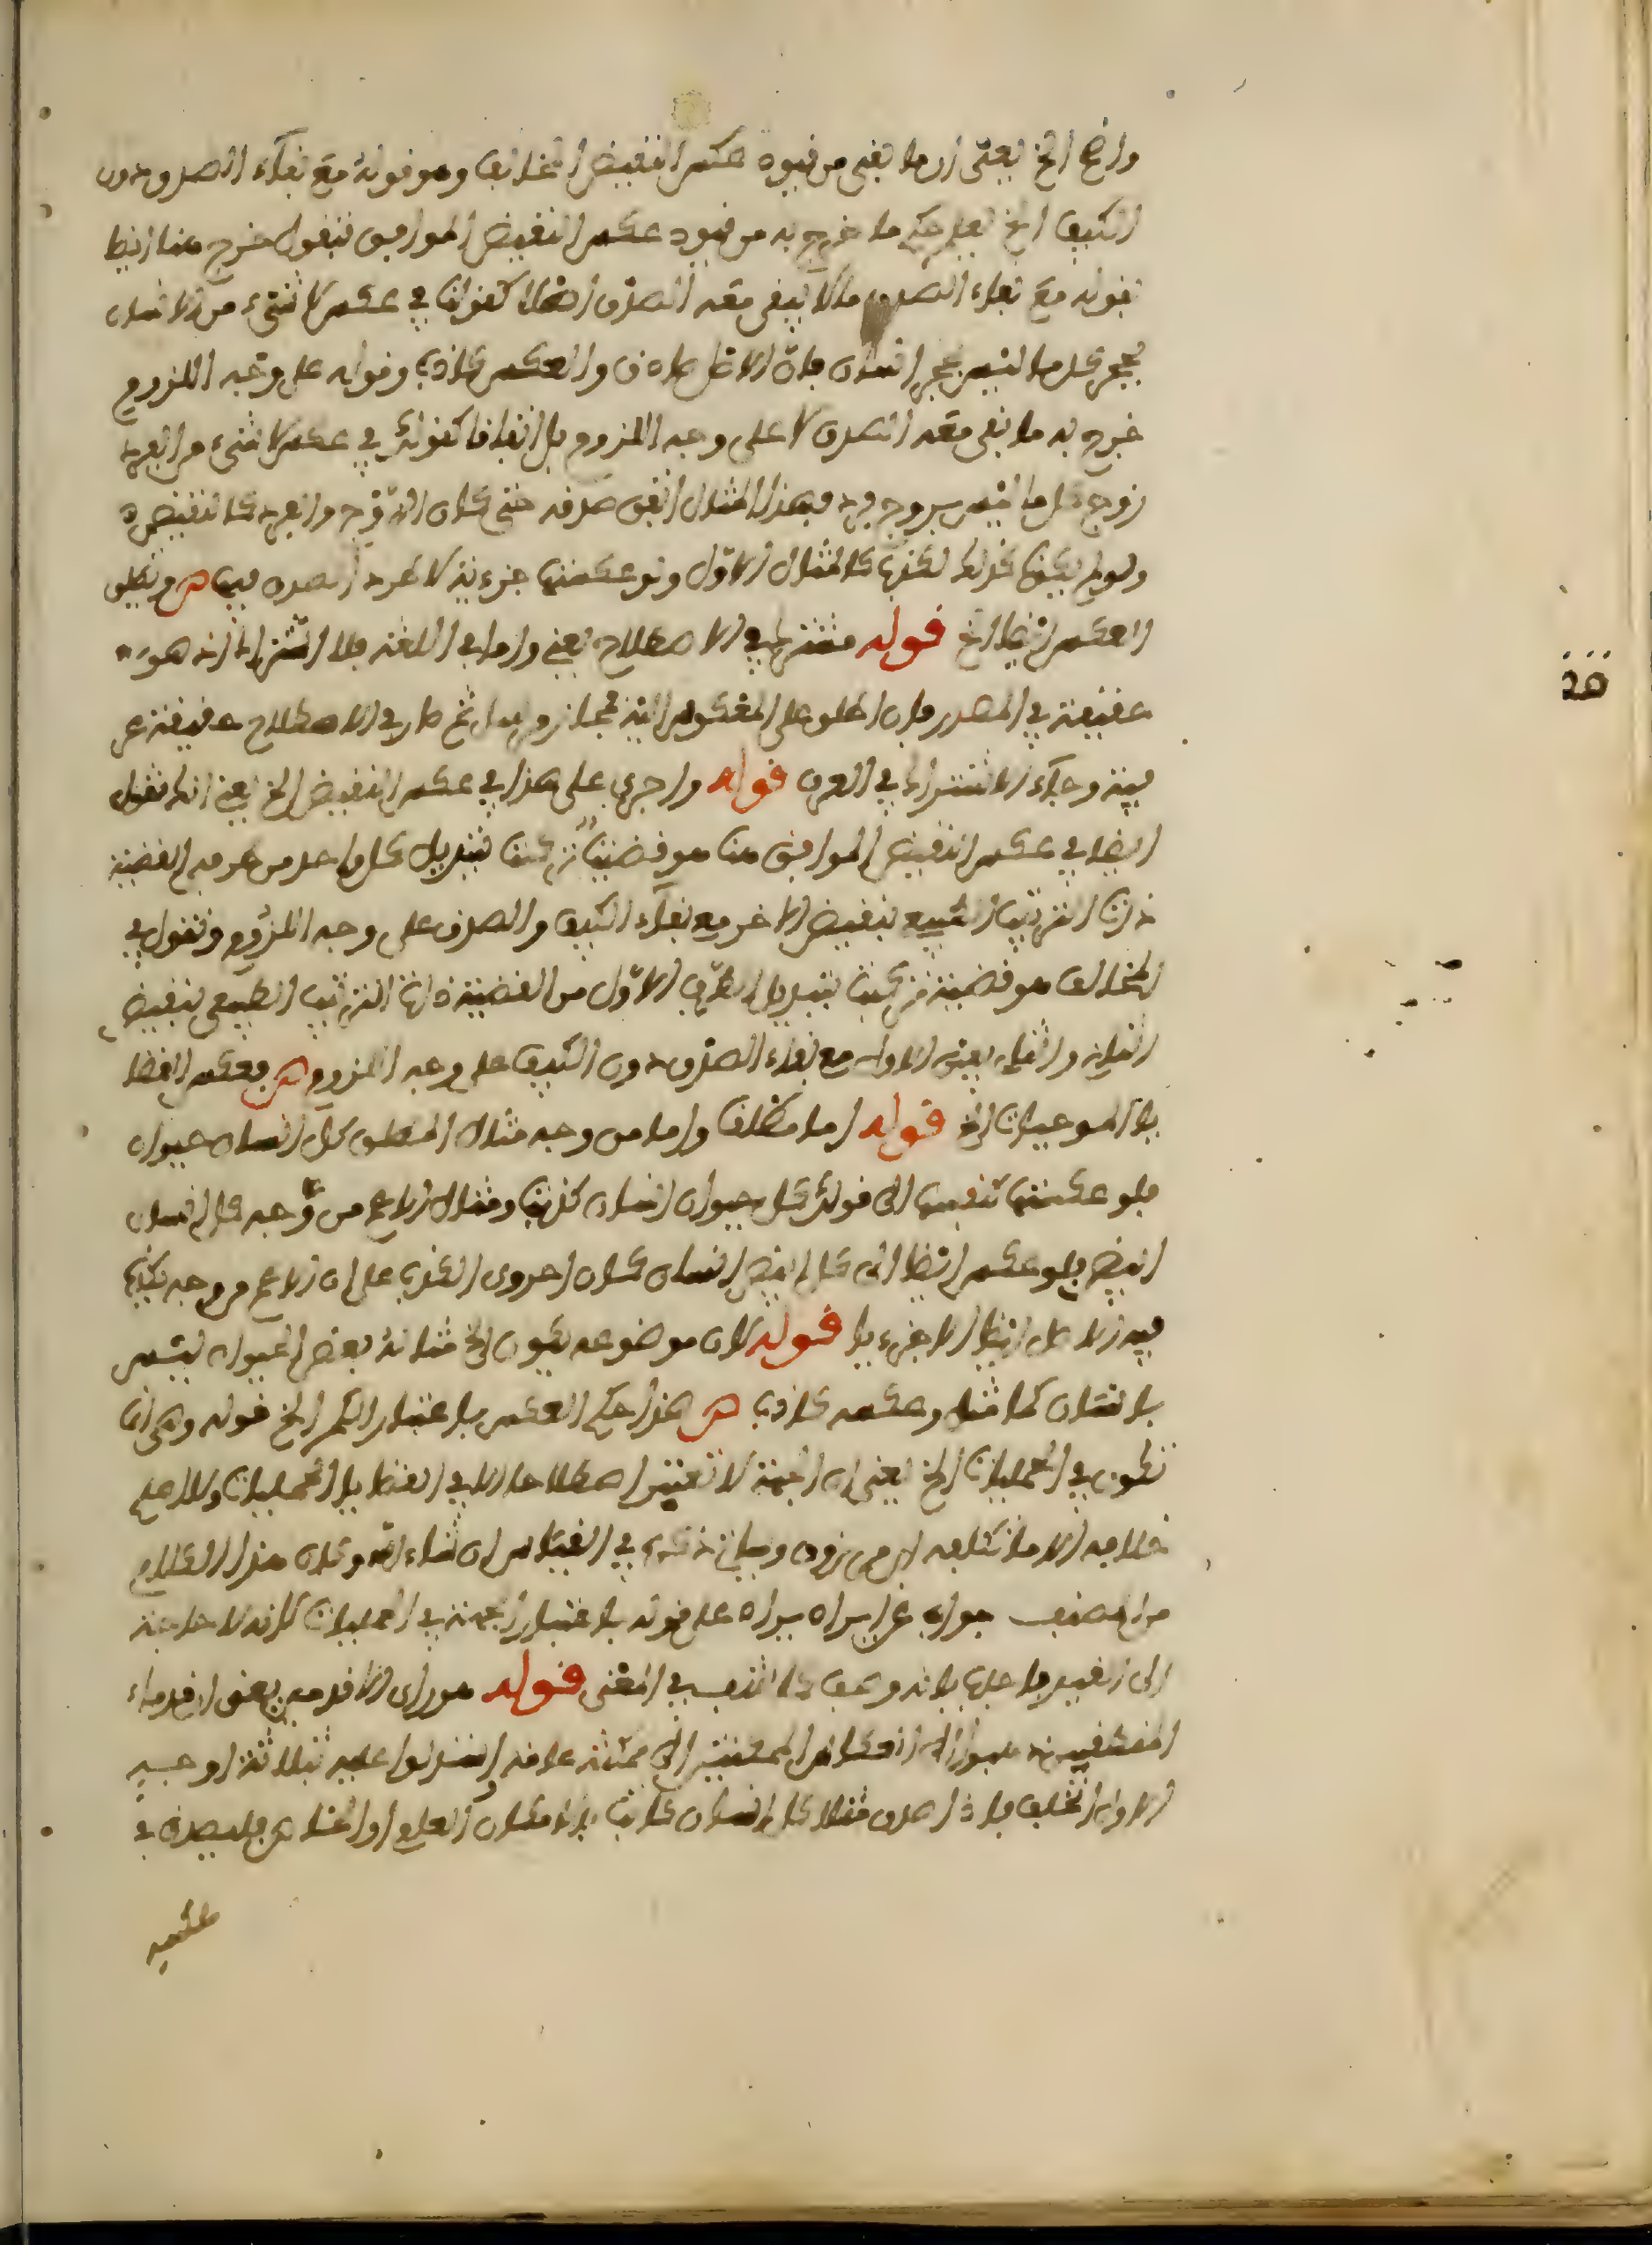 واضح الخ يعني ان ما بقي من قيود عكس النقيض المخالف وهو قوله مع بقاء الصدق دون
الكيف الخ يعلم حكم ما خرج به من قيود عكس النقيض الموافق فنقول خرج هنا ايضا
بقوله مع بقاء الصدق ما لا يبقى معه الصدق اصلا كقولنا في عكس لا شيء من الانسان
بحجر كل ما ليس بحجر انسان فان الاصل صادق والعكس كاذب وقوله على وجه اللزوم
خرج به ما بقي معه الصدق لا على وجه اللزوم بل اتفاقا كقولك في عكس لا شيء من الفرد
زوج كل ما ليس بزوج فرد فهذا المثال اتفق صدقه حتى كان الزوج والفرد كالنقيضين
ولو لم يكونا كذلك لكذب كالمثال الاول ولو عكستها جزئية لاطرد الصدق فيها ص ويطلق
العكس ايضا الخ قوله مشترك في الاصطلاح يعني واما في اللغة فلا اشتراك انه هو
حقيقة في المصدر فان اطلق على المعكوس اليه فمجاز مرسل ثم صار في الاصطلاح حقيقة عر
فية وجاء الاشتراك في العرف قوله واجرى على هذا في عكس النقيض الخ يعني انك تقول
ايضا في عكس النقيض الموافق هنا هو قضية تركبت بتبديل كل واحد من طرفي القضية
ذات الترتيب الطبيعي بنقيض الاخر مع بقاء الكيف والصدق على وجه اللزوم وتقول في
المخالف هو قضية تركبت بتبديل الطرف الاول من القضية ذات الترتيب الطبيعي بنقيض
الثاني والثاني بعين الاول مع بقاء الصدق دون الكيف على وجه اللزوم ص فعكس القضا
يا الموجبات الخ قوله اما مطلقا واما من وجه مثال المطلق كل انسان حيوان
فلو عكستها كنفسها الى قولك كل حيوان انسان كذبت ومثال الاعم من وجه كل انسان
ابيض فلو عكس ايضا الى كل ابيض انسان كان احرى في الكذب على ان الاعم من وجه يكذب
فيه الاصل ايضا الا جزءيا قوله لان موضوعه يكون الخ مثاله بعض الحيوان ليس
بانسان كما مثل وعكسه كاذب ص هذا حكم العكس باعتبار الكم الخ قوله وهي انما
تكون في الحمليات الخ يعني ان الجهة لا تعتبر اصطلاحا الا في القضايا الحمليات ولا اعلم
خلافه الا ما تكلفه ابن مرزوق وسياتي ذكره في القياس ان شاء الله وكان هذا الكلام
من المصنف جواب عن ايراد يراد على قوله باعتبار الجهة في الحمليات لانه لا حاجة
الى التقييد فاجاب بانه وصف كاشف في المعنى قوله هو راي الاقدمين يعني ان قدماء
المتقدمين ذهبوا الى انعكاس الممكنتين الى ممكنة عامة واستدلوا عليه بثلاثة اوجه
الاول الخلف فاذا صدق مثلا كل انسان كاتب بالامكان العام او الخاص فليصدق في
عكسه